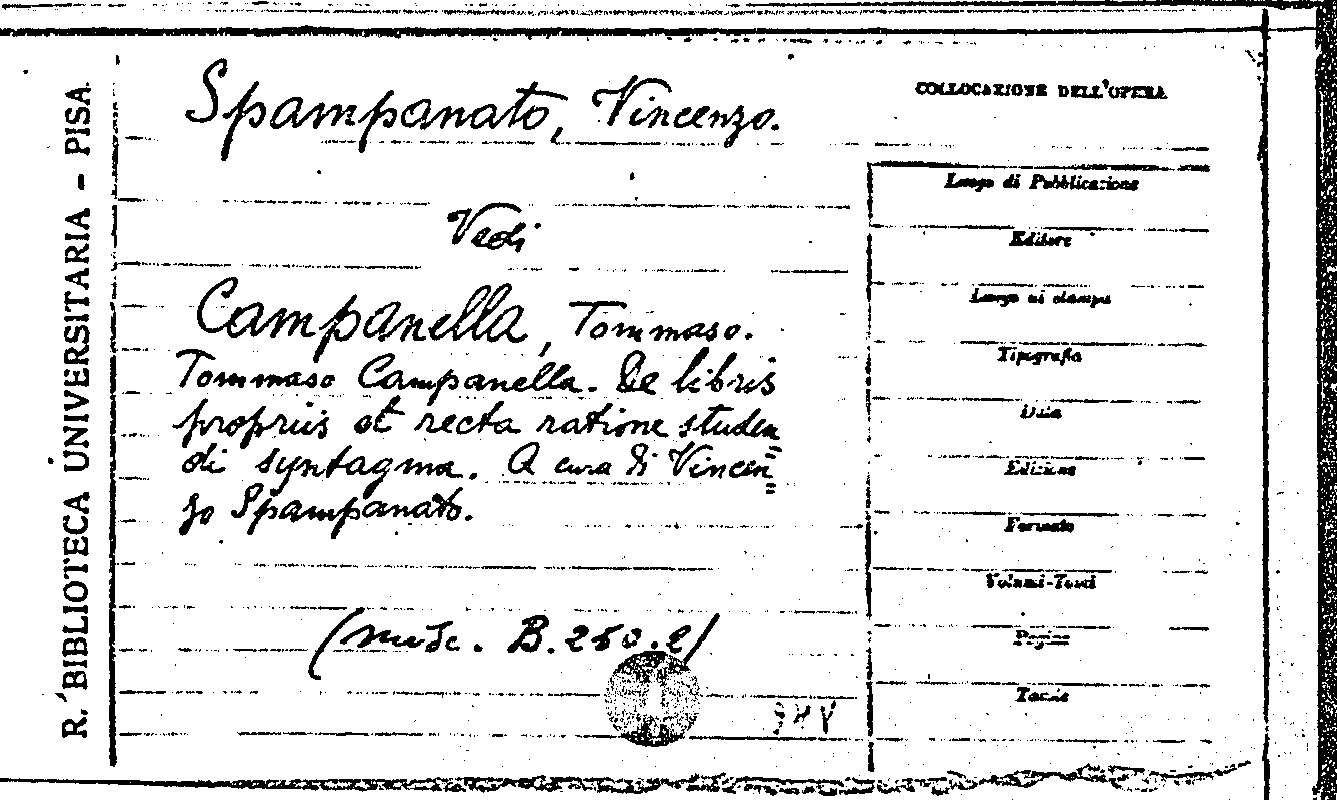 R. BIBLIOTECA UNIVERSITARIA - PISA
COLLOCAZIONE DELL'OPERA
Spampanato, Vincenzo.
Vedi
Campanella, Tommaso.
Tommaso Campanella. De libris
propriis et recta ratione studen
di syntagma. A cura di Vincen
zo Spampanato.
(misc. B. 260.2)
Luogo di Pubblicazione
Editore
Luogo di stampa
Tipografia
Data
Edizione
Formato
Volumi-Tomi
Pagine
Tavole